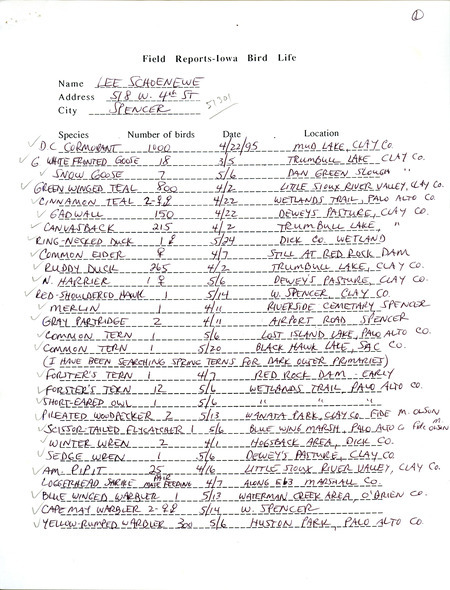 ①
Field Reports-Iowa Bird Life
Name LEE SCHOENEWE
Address 518 W. 4th ST
City SPENCER 51301
Species Number of birds Date Location
D C CORMORANT 1000 4/22/95 MUD LAKE, CLAY CO.
G WHITE FRONTED GOOSE 18 3/5 TRUMBULL LAKE CLAY CO.
SNOW GOOSE 7 5/6 DAN GREEN SLOUGH "
GREEN WINGED TEAL 800 4/2 LITTLE SIOUX RIVER VALLEY, CLAY CO.
CINNAMON TEAL 2-♂♂ 4/22 WETLANDS TRAIL, PALO ALTO CO
GADWALL 150 4/22 DEWEY'S PASTURE, CLAY CO.
CANVASBACK 215 4/2 TRUMBULL LAKE, "
RING-NECKED DUCK 1 ♂ 5/24 DICK CO. WETLAND
COMMON EIDER ♀ 4/7 STILL AT RED ROCK DAM
RUDDY DUCK 265 4/2 TRUMBULL LAKE, CLAY CO.
N. HARRIER 1 ♀ 5/6 DEWEY'S PASTURE, CLAY CO.
RED-SHOULDERED HAWK 1 5/14 W. SPENCER, CLAY CO.
MERLIN 1 4/11 RIVERSIDE CEMETARY SPENCER
GRAY PARTRIDGE 2 4/11 AIRPORT ROAD SPENCER
COMMON TERN 1 5/6 LOST ISLAND LAKE, PALO ALTO CO.
COMMON TERN 1 5/20 BLACK HAWK LAKE, SAC CO.
(I HAVE BEEN SEARCHING SPRING TERNS FOR DARK OUTER PRIMARIES)
FORSTER'S TERN 1 4/7 RED ROCK DAM - EARLY
FORSTER'S TERN 12 5/6 WETLANDS TRAIL, PALO ALTO CO.
SHORT-EARED OWL 1 5/6 " " "
PILEATED WOODPECKER 2 5/13 WANATA PARK, CLAY CO. FIDE M. OLSON
SCISSOR TAILED FLYCATCHER 1 5/6 BLUE WING MARSH, PALO ALTO C FIDE M. OLSON
WINTER WREN 2 4/1 HOGSBACK AREA, DICK CO.
SEDGE WREN 1 5/6 DEWEY'S PASTURE, CLAY CO.
AM. PIPIT 25 4/16 LITTLE SIOUX RIVER VALLEY, CLAY CO.
LOGGERHEAD SHRIKE PAIR MALE FEEDING 4/7 ALONG E63 MARSHALL CO.
BLUE WINGED WARBLER 1 5/13 WATERMAN CREEK AREA, O'BRIEN CO.
CAPE MAY WARBLER 2-♂♂ 5/14 W. SPENCER
YELLOW-RUMPED WARBLER 300 5/6 HUSTON PARK, PALO ALTO CO.